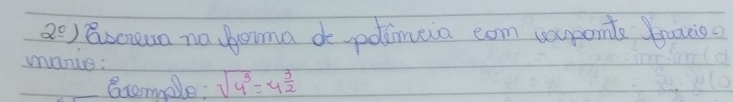 2º) Escreva na forma de potência com expoente fracio-
nário:
Exemplo: √4³ = 4^(3/2)